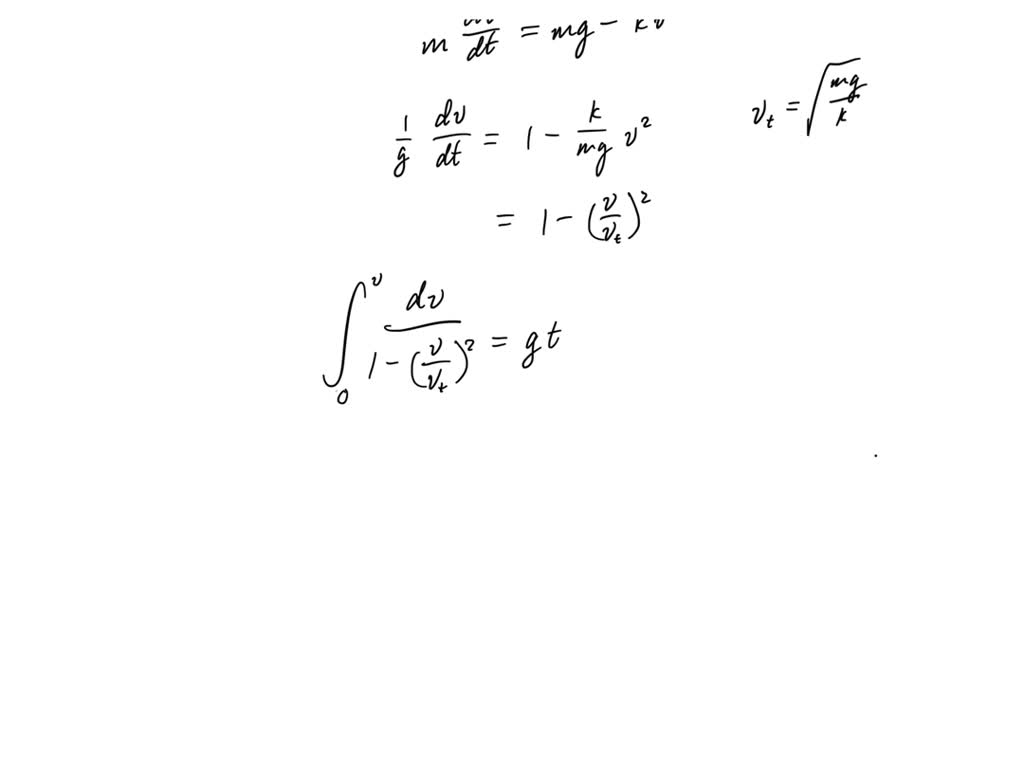 m dv/dt = mg - kv
1/g dv/dt = 1 - k/mg v²
v_t = √(mg/k)
= 1 - (v/v_t)²
∫₀^v dv/(1 - (v/v_t)²) = gt